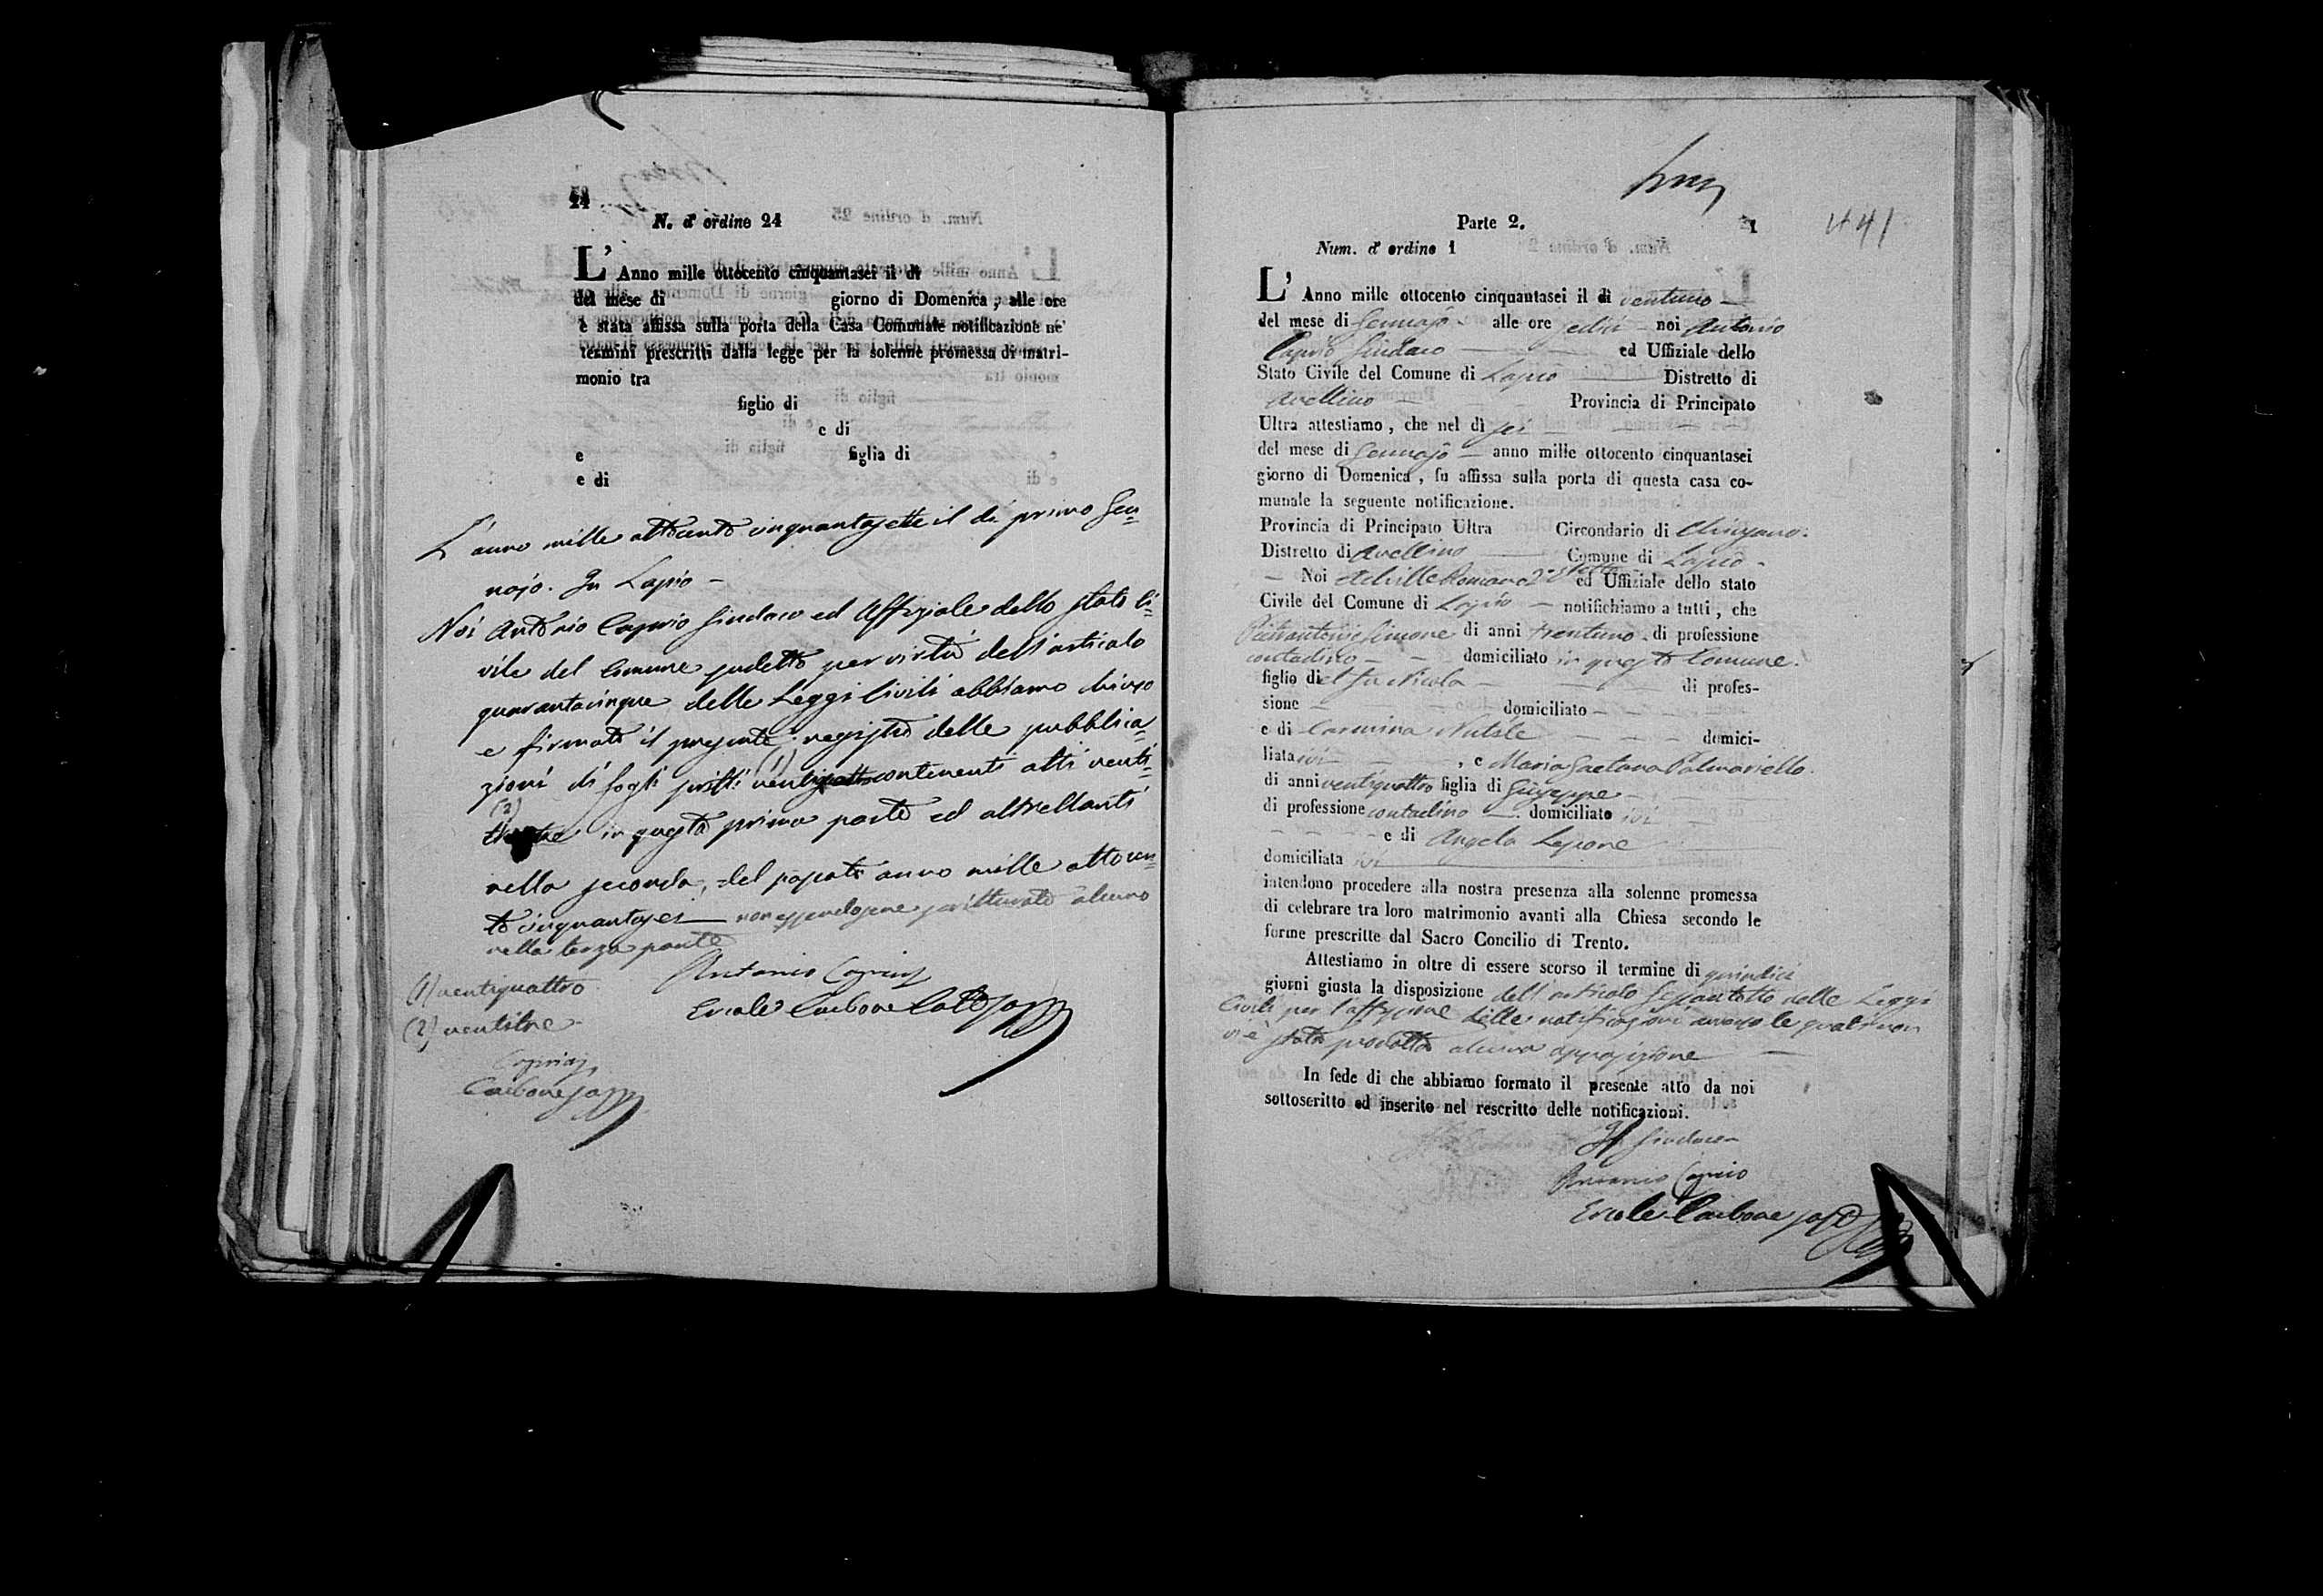 24
N. d' ordine 24
L' Anno mille ottocento cinquantasei il di
del mese di giorno di Domenica, alle ore
è stata affissa sulla porta della Casa Comunale notificazione ne'
termini prescritti dalla legge per la solenne promessa di matri-
monio tra
figlio di
e di
e figlia di
e di
L'anno mille ottocento cinquantasette il di primo Gen=
najo. In Lapio -
Noi Antonio Caprio Sindaco ed Uffiziale dello Stato Ci=
vile del Comune sudetto per virtù dell'articolo
quarantacinque delle Leggi Civili abbiamo chiuso
e firmato il presente registro delle pubblica=
zioni di fogli scritti (1) contenenti atti venti=
(2) in questa prima parte ed altrettanti
nella seconda, del passato anno mille ottocen=
to cinquantasei — non essendosene scritturato alcuno
nella terza parte
(1) ventiquattro
(2) ventitre
Antonio Caprio
Ercole Carbone
Caprio
Carbone
Parte 2.
1
441
Num. d' ordine 1
L' Anno mille ottocento cinquantasei il dì ventuno —
del mese di Gennajo - alle ore sedici - noi Antonio
Caprio Sindaco — ed Uffiziale dello
Stato Civile del Comune di Lapio — Distretto di
Avellino — Provincia di Principato
Ultra attestiamo, che nel dì sei —
del mese di Gennajo — anno mille ottocento cinquantasei
giorno di Domenica, fu affissa sulla porta di questa casa co-
munale la seguente notificazione.
Provincia di Principato Ultra Circondario di Chiusano.
Distretto di Avellino — Comune di Lapio -
— Noi Achille Romano 2° Eletto ed Uffiziale dello stato
Civile del Comune di Lapio — notifichiamo a tutti, che
Pietrantonio Simone di anni trentuno. di professione
contadino — — domiciliato in questo Comune.
figlio di fu Nicola — di profes-
sione — domiciliato —
e di Carmina Natale — domici-
liata ivi , e Maria Gaetana Palmariello.
di anni ventiquattro figlia di Giuseppe —
di professione contadino —. domiciliato ivi
— e di Angela Lepore
domiciliata ivi
intendono procedere alla nostra presenza alla solenne promessa
di celebrare tra loro matrimonio avanti alla Chiesa secondo le
forme prescritte dal Sacro Concilio di Trento.
Attestiamo in oltre di essere scorso il termine di quindici
giorni giusta la disposizione dell'articolo sessantotto delle Leggi
Civili per l'affissione delle notificazioni avverso le quali non
vi è stata prodotta alcuna opposizione —
In fede di che abbiamo formato il presente atto da noi
sottoscritto ed inserito nel rescritto delle notificazioni.
Il Sindaco
Antonio Caprio
Ercole Carbone